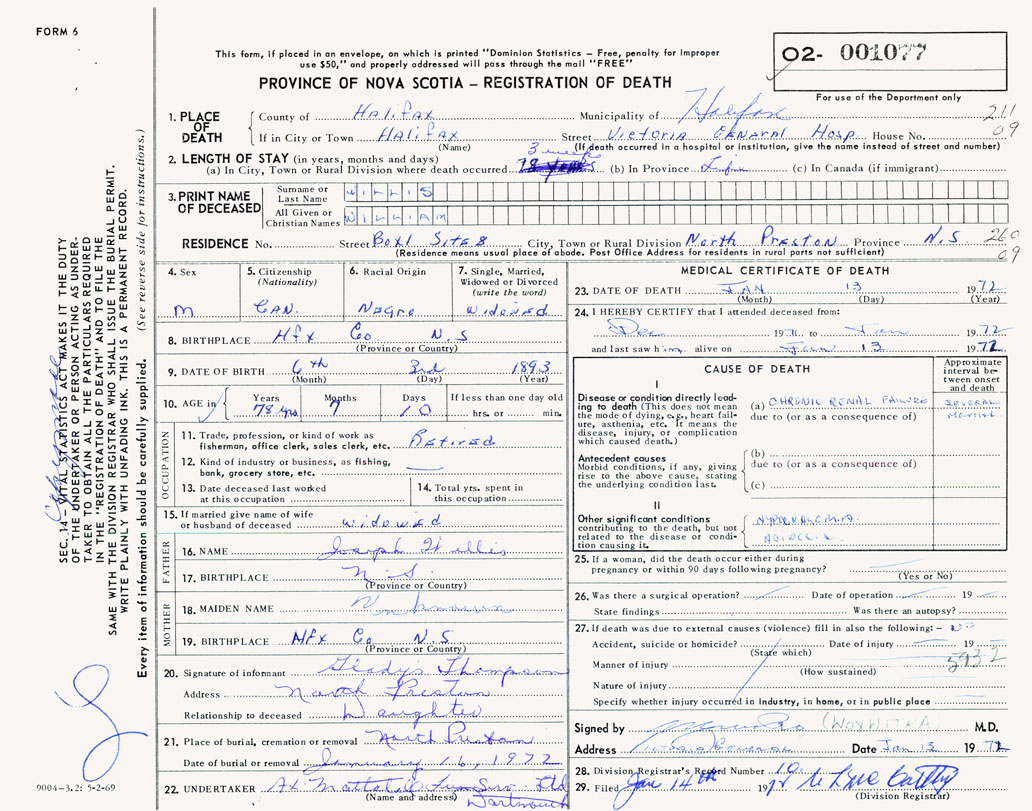 FORM 6
This form, if placed in an envelope, on which is printed "Dominion Statistics – Free, penalty for improper
use $50," and properly addressed will pass through the mail "FREE"
O2- 001077
PROVINCE OF NOVA SCOTIA – REGISTRATION OF DEATH
For use of the Department only
1. PLACE OF DEATH
County of Halifax Municipality of Halifax 211
If in City or Town Halifax Street Victoria General Hosp House No. 09
(Name) (If death occurred in a hospital or institution, give the name instead of street and number)
2. LENGTH OF STAY (in years, months and days) 3 weeks
(a) In City, Town or Rural Division where death occurred (b) In Province Life (c) In Canada (if immigrant)
3. PRINT NAME OF DECEASED
Surname or Last Name WILLIS
All Given or Christian Names WILLIAM
RESIDENCE No. Street Box1 Site 8 City, Town or Rural Division North Preston Province N.S 260
(Residence means usual place of abode. Post Office Address for residents in rural parts not sufficient) 09
4. Sex M
5. Citizenship (Nationality) CAN.
6. Racial Origin Negro
7. Single, Married, Widowed or Divorced (write the word) Widowed
8. BIRTHPLACE Hfx Co N.S
(Province or Country)
9. DATE OF BIRTH 6th 3rd 1893
(Month) (Day) (Year)
10. AGE in Years 78 yrs Months 7 Days 10 If less than one day old
hrs. or min.
OCCUPATION
11. Trade, profession, or kind of work as
fisherman, office clerk, sales clerk, etc. Retired
12. Kind of industry or business, as fishing,
bank, grocery store, etc.
13. Date deceased last worked
at this occupation
14. Total yrs. spent in
this occupation
15. If married give name of wife
or husband of deceased widowed
FATHER
16. NAME Joseph Willis
17. BIRTHPLACE N.S.
(Province or Country)
MOTHER
18. MAIDEN NAME Unknown
19. BIRTHPLACE Hfx Co N.S
(Province or Country)
20. Signature of informant Gladys Thompson
Address North Preston
Relationship to deceased Daughter
21. Place of burial, cremation or removal North Preston
Date of burial or removal January 16, 1972
22. UNDERTAKER Ltd
(Name and address) Dartmouth
MEDICAL CERTIFICATE OF DEATH
23. DATE OF DEATH JAN 13 1972
(Month) (Day) (Year)
24. I HEREBY CERTIFY that I attended deceased from:
Dec 1971 to Jan 1972
and last saw him alive on Jan 13 1972
CAUSE OF DEATH
Approximate interval between onset and death
I
Disease or condition directly leading to death (This does not mean the mode of dying, e.g., heart failure, asthenia, etc. It means the disease, injury, or complication which caused death.)
(a) CHRONIC RENAL FAILURE several months
due to (or as a consequence of)
Antecedent causes
Morbid conditions, if any, giving rise to the above cause, stating the underlying condition last.
(b)
due to (or as a consequence of)
(c)
II
Other significant conditions
contributing to the death, but not related to the disease or condition causing it.
25. If a woman, did the death occur either during
pregnancy or within 90 days following pregnancy?
(Yes or No)
26. Was there a surgical operation? Date of operation 19
State findings Was there an autopsy?
27. If death was due to external causes (violence) fill in also the following: – No
Accident, suicide or homicide? Date of injury 19
(State which) 593.2
Manner of injury
(How sustained)
Nature of injury
Specify whether injury occurred in Industry, in home, or in public place
Signed by (WOYWITKA) M.D.
Address Victoria General Date Jan 13 1972
28. Division Registrar's Record Number 10
29. Filed Jan 14th 1972
(Division Registrar)
SEC. 14 – VITAL STATISTICS ACT MAKES IT THE DUTY
OF THE UNDERTAKER OR PERSON ACTING AS UNDER-
TAKER TO OBTAIN ALL THE PARTICULARS REQUIRED
IN THE "REGISTRATION OF DEATH" AND TO FILE THE
SAME WITH THE DIVISION REGISTRAR WHO SHALL ISSUE THE BURIAL PERMIT.
WRITE PLAINLY WITH UNFADING INK. THIS IS A PERMANENT RECORD.
Every item of information should be carefully supplied. (See reverse side for instructions.)
9004–3.2: 5-2-69